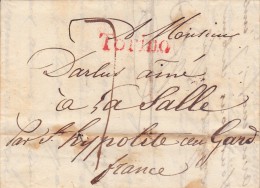 Monsieur
TORINO
Darlus ainé
à La Salle
Par St hypolite en Gard
france